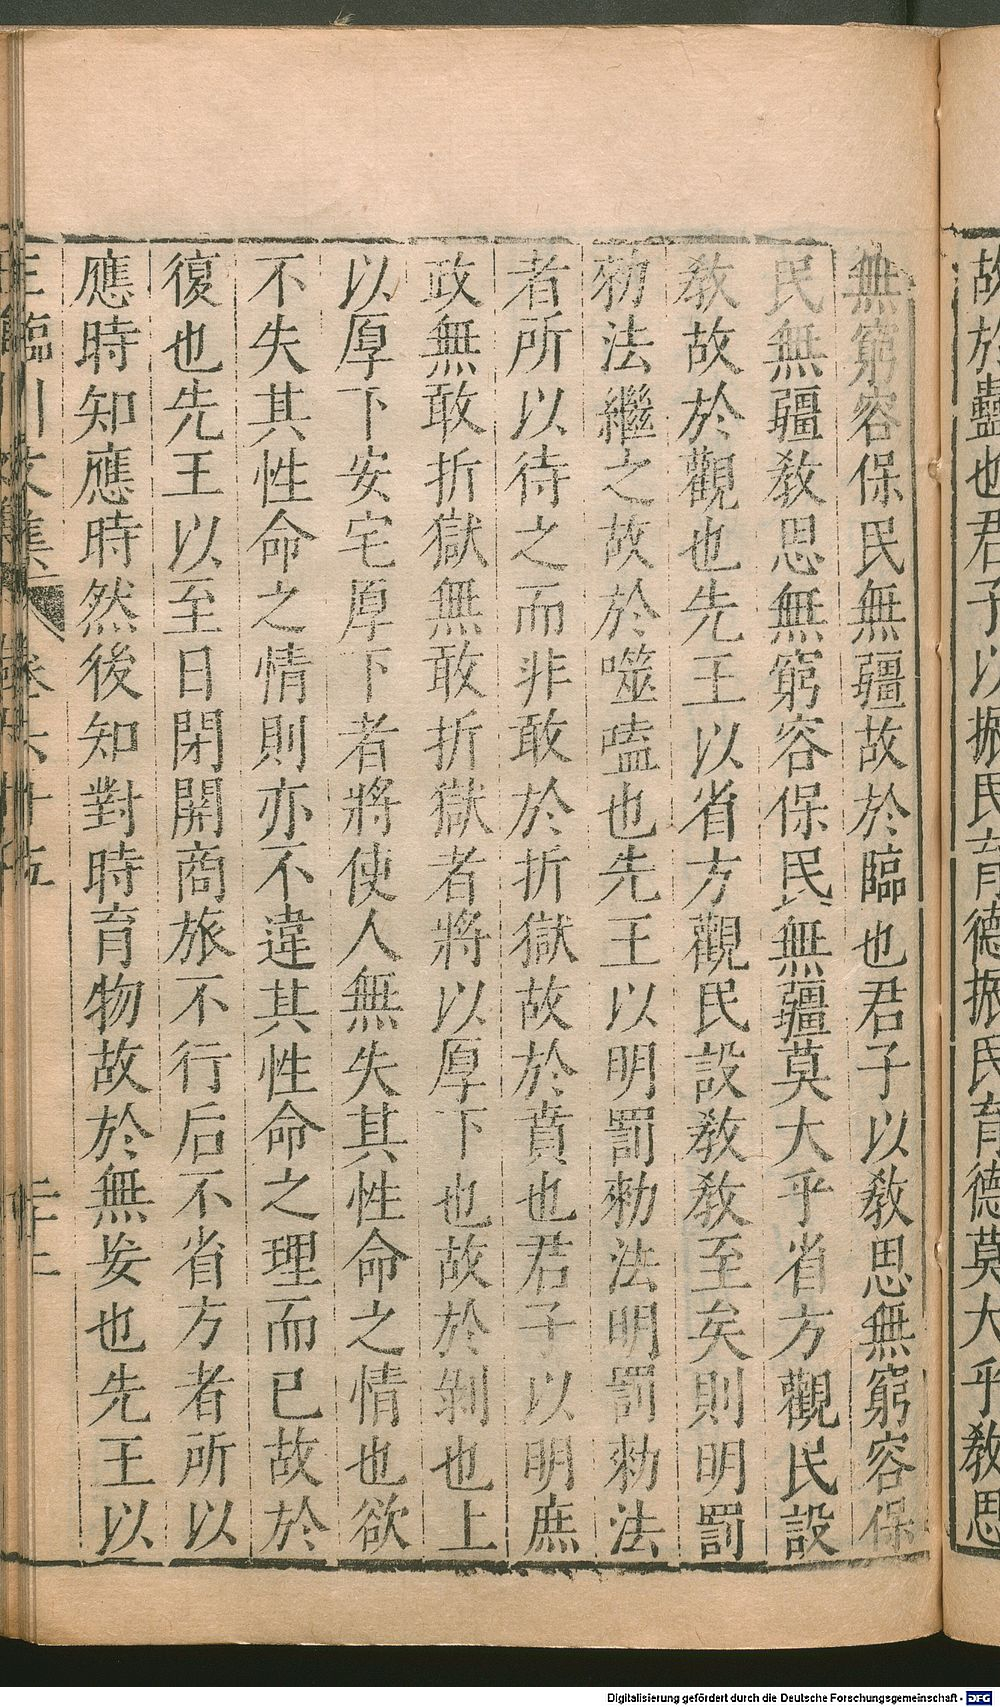 故於蠱也君子以振民育德振民育德莫大乎教思
無窮容保民無疆故於臨也君子以教思無窮容保
民無疆教思無窮容保民無疆莫大乎省方觀民設
教故於觀也先王以省方觀民設教教至矣則明罰
勑法繼之故於噬嗑也先王以明罰勑法明罰勑法
者所以待之而非敢於折獄故於賁也君子以明庶
政無敢折獄無敢折獄者將以厚下也故於剝也上
以厚下安宅厚下者將使人無失其性命之情也欲
不失其性命之情則亦不違其性命之理而已故於
復也先王以至日閉關商旅不行后不省方者所以
應時知應時然後知對時育物故於無妄也先王以
王臨川文集 卷六十五 二十二
Digitalisierung gefördert durch die Deutsche Forschungsgemeinschaft - DFG